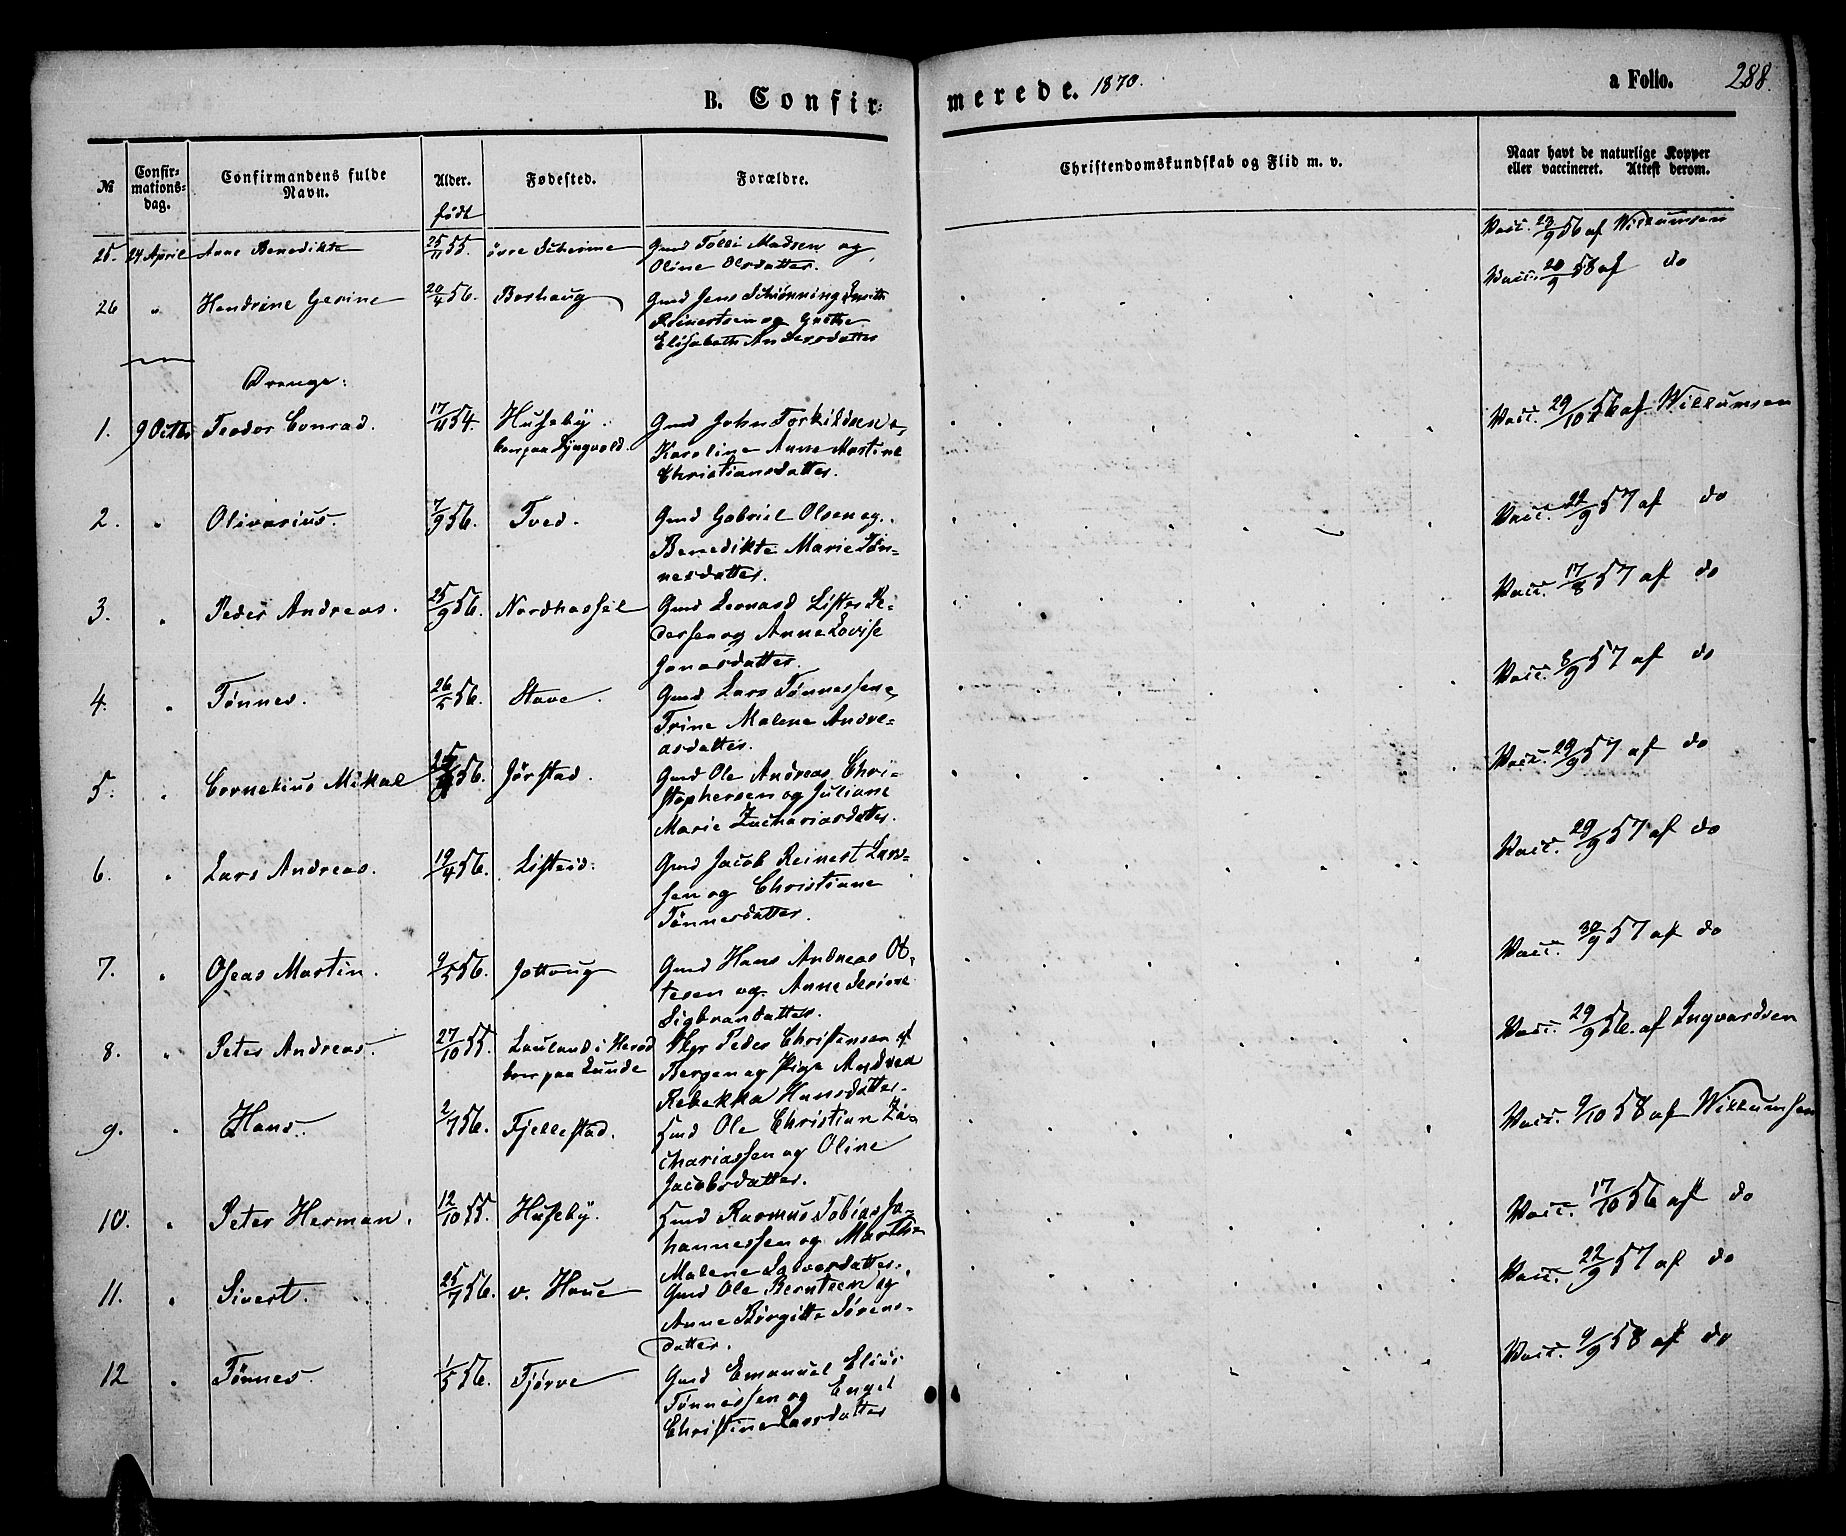 B. Confirmerede. 1870. a Folio. 288.
№ Confirmationsdag. Confirmandens fulde Navn. Alder. Fødested. Forældre. Christendomskundskab og Flid m. v. Naar havt de naturlige Kopper eller vaccineret. Attest derom.
født
25. 24 April Anne Benedikte 25/11 55. øvre Skeime Gmd Tolli Madsen og Vacc. 28/9 56 af Willumsen
Oline Olsdatter.
26 " Hendrine Gesine 20/4 56. Borhaug Gmd Jens Schiønning Vacc. 20/9 58 af do
Reinertsen og Grethe
Elisabeth Andersdatter
Vrange:
1. 9 Octbr Teodor Conrad. 17/11 54. Huseby. Gmd John Torkildsen Vacc. 29/10 56 af Willumsen
bor paa Lyngvold. Karoline Anne Martine
Christiansdatter.
2. " Olivarius. 7/9 56. Tved. Gmd Gabriel Olsen og Vacc. 22/9 57 af do
Benedikte Marie Tøn-
nesdatter.
3. " Peder Andreas. 25/9 56. Nordhassel Gmd Leonard Lister Pe- Vacc. 17/8 57 af do
dersen og Anne Lovise
Jonasdatter.
4. " Tønnes. 26/5 56. Stave. Gmd Lars Tønnessen Vacc. 8/9 57 af do
Trine Malene Andre-
asdatter.
5. " Cornelius Mikal 56. Jørstad. Gmd Ole Andreas Chri- Vacc. 29/9 57 af do
stophersen og Juliane
Marie Zachariasdatter.
6. " Lars Andreas. 19/4 56. Listeid. Gmd Jacob Reinert Lar- Vacc. 29/9 57 af do
sen og Christiane
Tønnesdatter.
7. " Oseas Martin. 9/5 56. Jøllaug Gmd Hans Andreas Ot- Vacc. 30/9 57 af do
tesen og Anne Serine
Sigbrandatter.
8. " Peter Andreas. 27/10 55. Lauland i Herad Ugr Peder Christensen af Vacc. 29/9 56. af Ingvardsen
boer paa Lunde Bergen og Pige Andrea
Rebekka Hansdatter.
9. " Hans. 2/7 56. Fjellestad. Hmd Ole Christian Za- Vacc. 9/10 58 af Willumsen
chariassen og Oline
Jacobsdatter.
10. " Peter Herman. 12/10 55. Huseby. Hmd Rasmus Tobias Jo- Vacc. 17/10 56 af do
hannessen og Marthe
Malene Salvesdatter.
11. " Sivert. 25/7 56. v. Haue Gmd Ole Berntsen og Vacc. 22/9 57 af do
Anne Birgitte Sørens-
datter.
12 " Tønnes. 1/5 56. Tjørve Gmd Emanuel Elias Vacc. 9/9 58 af do
Tønnessen og Engel
Christine Larsdatter